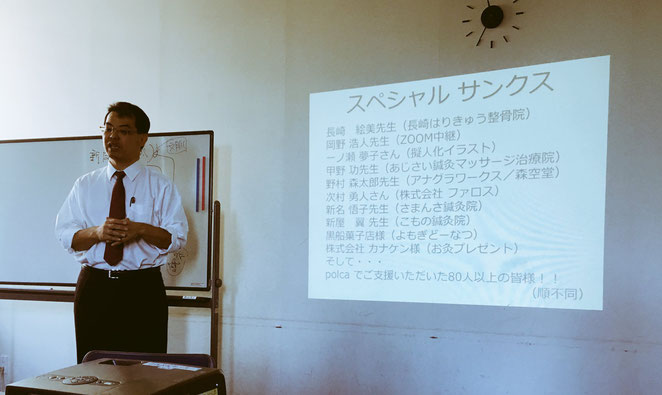 スペシャル サンクス
長崎　絵美先生（長崎はりきゅう整骨院）
岡野 浩人先生（ZOOM中継）
一ノ瀬 夢子さん（擬人化イラスト）
甲野 功先生（あじさい鍼灸マッサージ治療院）
野村 森太郎先生（アナグラワークス／森空堂）
次村 勇人さん（株式会社 ファロス）
新名 悟子先生（さまんさ鍼灸院）
新屋　翼 先生（こもの鍼灸院）
黒船菓子店様（よもぎどーなつ）
株式会社 カナケン様（お灸プレゼント）
そして・・・
polca でご支援いただいた80人以上の皆様！！
（順不同）